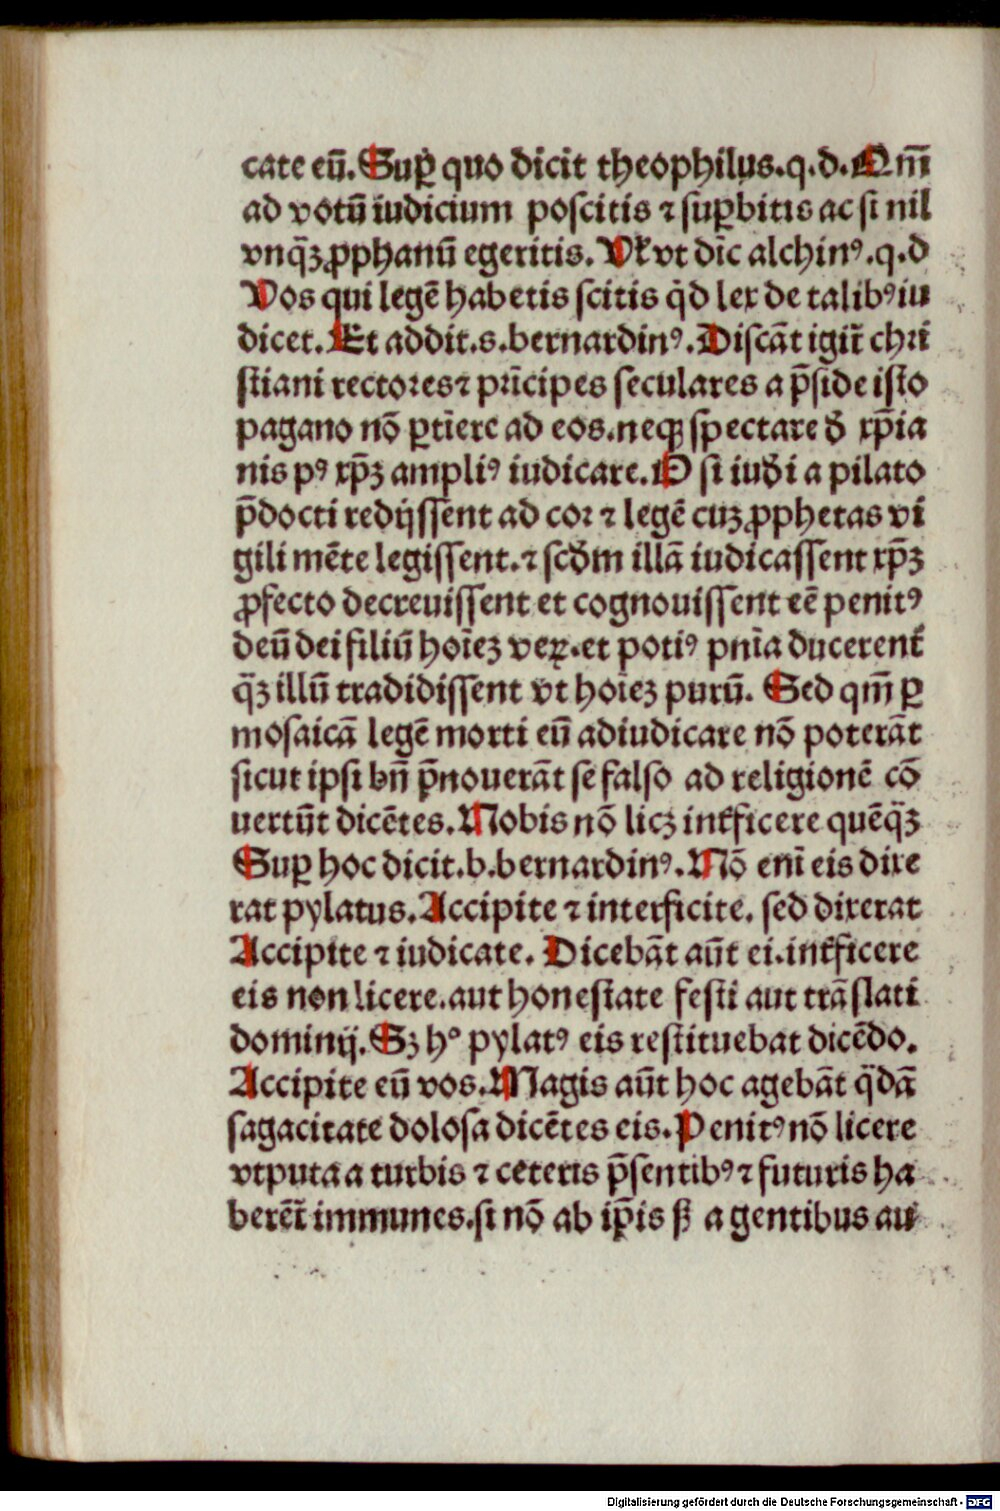 cate eū. Suꝑ quo dicit theophilus.q.d. Qm̄
ad votū iudicium poscitis ⁊ suꝑbitis ac si nil
vnq̄ꝫ ꝓphanū egeritis. Ul̓ vt dīc alchinꝰ.q.d
Vos qui legē habetis scitis qd̓ lex de talibꝰ iu
dicet. Et addit.s.bernardinꝰ. Discāt igit̄ chri
stiani rectores ⁊ prīcipes seculares a p̄side isto
pagano nō ꝑtīere ad eos.neqꝫ spectare đ xp̄ia
nis pꝰ xp̄ꝫ ampliꝰ iudicare. O si iuđi a pilato
p̄docti redijssent ad cor ⁊ legē cuꝫ ꝓphetas vi
gili mēte legissent.⁊ scđm illā iudicassent xp̄ꝫ
ꝓfecto decreuissent et cognouissent eē penitꝰ
deū dei filiū hoīeꝫ veꝝ.et potiꝰ pnīa ducerent̄
q̄ꝫ illū tradidissent vt hoīeꝫ purū. Sed qm̄ ꝑ
mosaicā legē morti eū adiudicare nō poterāt
sicut ipsi bn̄ p̄nouerāt se falso ad religionē cō
uertūt dicētes. Nobis nō licꝫ int̄ficere quēq̄ꝫ
Suꝑ hoc dicit.b.bernardinꝰ. Nō enī eis dixe
rat pylatus. Accipite ⁊ interficite. sed dixerat
Accipite ⁊ iudicate. Dicebāt aūt ei.int̄ficere
eis non licere.aut honestate festi aut trāslati
dominij. Sꝫ h° pylatꝰ eis restituebat dicēdo.
Accipite eū vos. Magis aūt hoc agebāt q̄dā
sagacitate dolosa dicētes eis. Penitꝰ nō licere
vtputa a turbis ⁊ ceteris p̄sentibꝰ ⁊ futuris ha
berēt̄ immunes.si nō ab ip̄is ꝭ a gentibus au
Digitalisierung gefördert durch die Deutsche Forschungsgemeinschaft - DFG